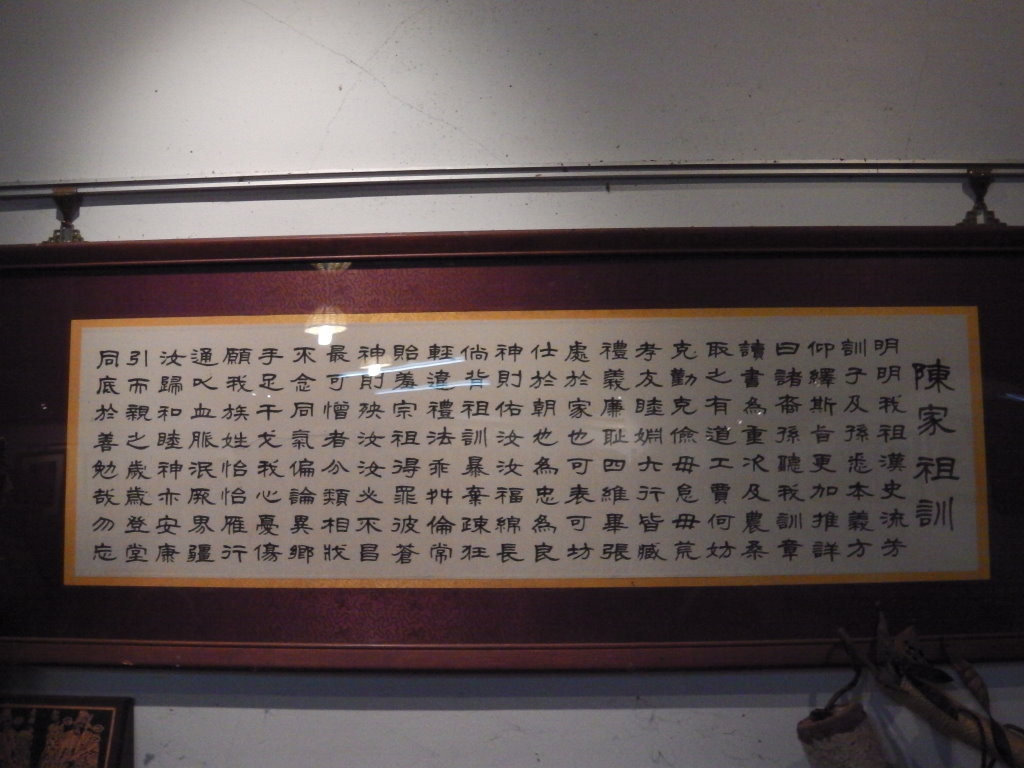 陳家祖訓
明明我祖漢史流芳
訓子及孫悉本義方
仰繹斯旨更加推詳
曰諸裔孫聽我訓章
讀書為重次及農桑
取之有道工賈何妨
克勤克儉毋怠毋荒
孝友睦婣六行皆臧
禮義廉耻四維畢張
處於家也可表可坊
仕於朝也為忠為良
神則佑汝汝福綿長
倘背祖訓暴棄疎狂
輕違禮法乖舛倫常
貽羞宗祖得罪彼蒼
神則殃汝汝必不昌
最可憎者分類相戕
不念同氣偏論異鄉
手足干戈我心憂傷
願我族姓怡怡雁行
通以血脈泯厥界疆
汝歸和睦神亦安康
引而親之歲歲登堂
同底於善勉哉勿忘